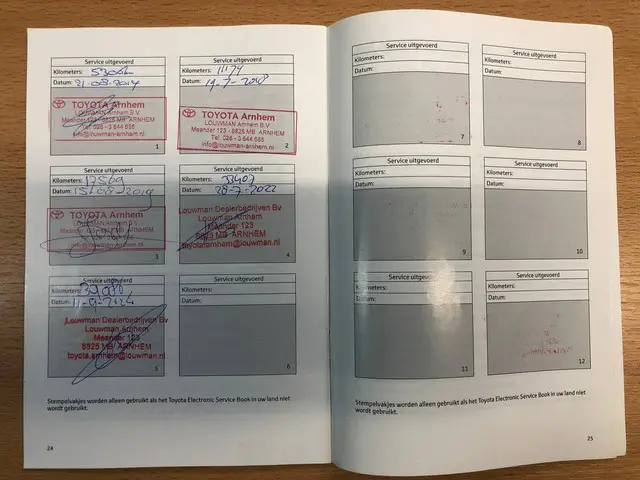 Service uitgevoerd
Kilometers:
Datum: 31-08-2017
TOYOTA Arnhem
LOUWMAN Arnhem B.V.
Meander 123 - 6825 MB ARNHEM
Tel. 026 - 3 644 656
info@louwman-arnhem.nl
1
Service uitgevoerd
Kilometers: 11174
Datum: 19-7-2018
TOYOTA Arnhem
LOUWMAN Arnhem B.V.
Meander 123 - 6825 MB ARNHEM
Tel. 026 - 3 644 656
info@louwman-arnhem.nl
2
Service uitgevoerd
Kilometers: 17569
Datum: 15-08-2019
TOYOTA Arnhem
3
Service uitgevoerd
Kilometers:
Datum: 28-7-2022
Louwman Dealerbedrijven Bv
Louwman Arnhem
Meander 123
6825 MB ARNHEM
toyota.arnhem@louwman.nl
4
Service uitgevoerd
Kilometers:
Datum: 11-9-2024
Louwman Dealerbedrijven Bv
Louwman Arnhem
Meander 123
6825 MB ARNHEM
toyota.arnhem@louwman.nl
5
Service uitgevoerd
Kilometers:
Datum:
6
Stempelvakjes worden alleen gebruikt als het Toyota Electronic Service Book in uw land niet
wordt gebruikt.
24
Service uitgevoerd
Kilometers:
Datum:
7
Service uitgevoerd
Kilometers:
Datum:
8
Service uitgevoerd
Kilometers:
Datum:
9
Service uitgevoerd
Kilometers:
Datum:
10
Service uitgevoerd
Kilometers:
Datum:
11
Service uitgevoerd
Kilometers:
Datum:
12
Stempelvakjes worden alleen gebruikt als het Toyota Electronic Service Book in uw land niet
wordt gebruikt.
25